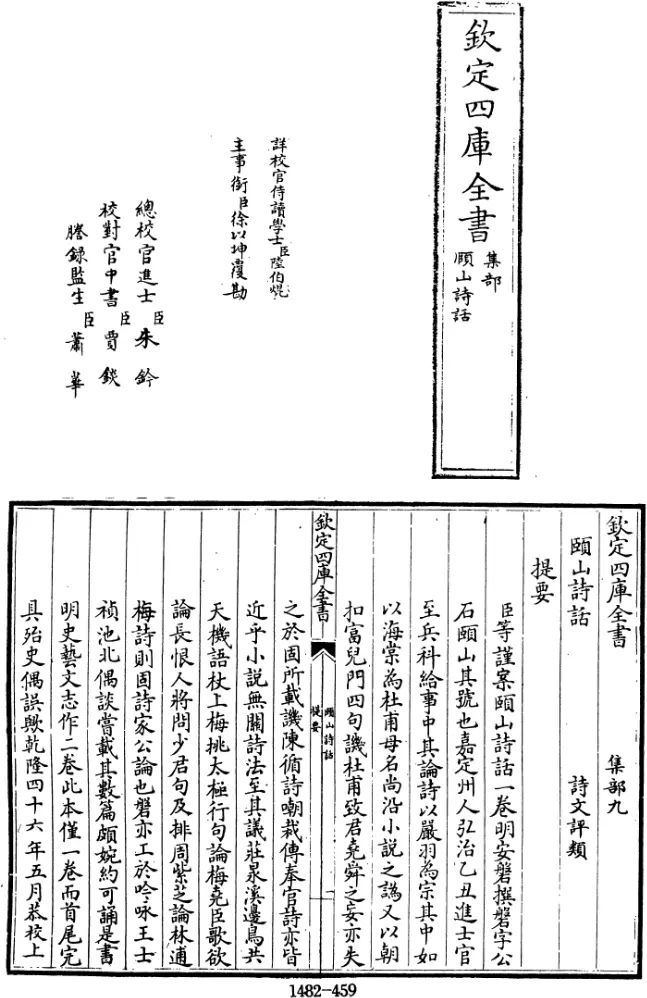 欽定四庫全書
集部
頤山詩話
詳校官侍讀學士臣陸伯焜
主事銜臣徐以坤覆勘
總校官進士臣朱鈐
校對官中書臣賈鍈
謄錄監生臣蕭華
欽定四庫全書 集部九
頤山詩話 詩文評類
提要
臣等謹案頤山詩話一卷明安磐撰磐字公
石頤山其號也嘉定州人弘治乙丑進士官
至兵科給事中其論詩以嚴羽為宗其中如
以海棠為杜甫母名尚沿小說之譌又以朝
扣富兒門四句譏杜甫致君堯舜之妄亦失
欽定四庫全書
頤山詩話
提要
一
之於固所載譏陳循詩嘲裁傳奉官詩亦皆
近乎小說無關詩法至其議莊㫤溪邊鳥共
天機語杖上梅挑太極行句論梅堯臣歌欲
論長恨人將問少君句及排周紫芝論林逋
梅詩則固詩家公論也磐亦工於吟咏王士
禎池北偶談嘗載其數篇頗婉約可誦是書
明史藝文志作二卷此本僅一卷而首尾完
具殆史偶誤歟乾隆四十六年五月恭校上
1482-459